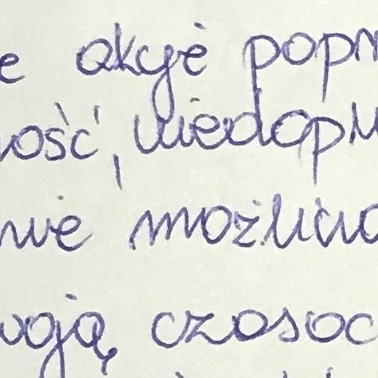 e akyje popr
ość, niedopu
nie możliwo
woją czasoc